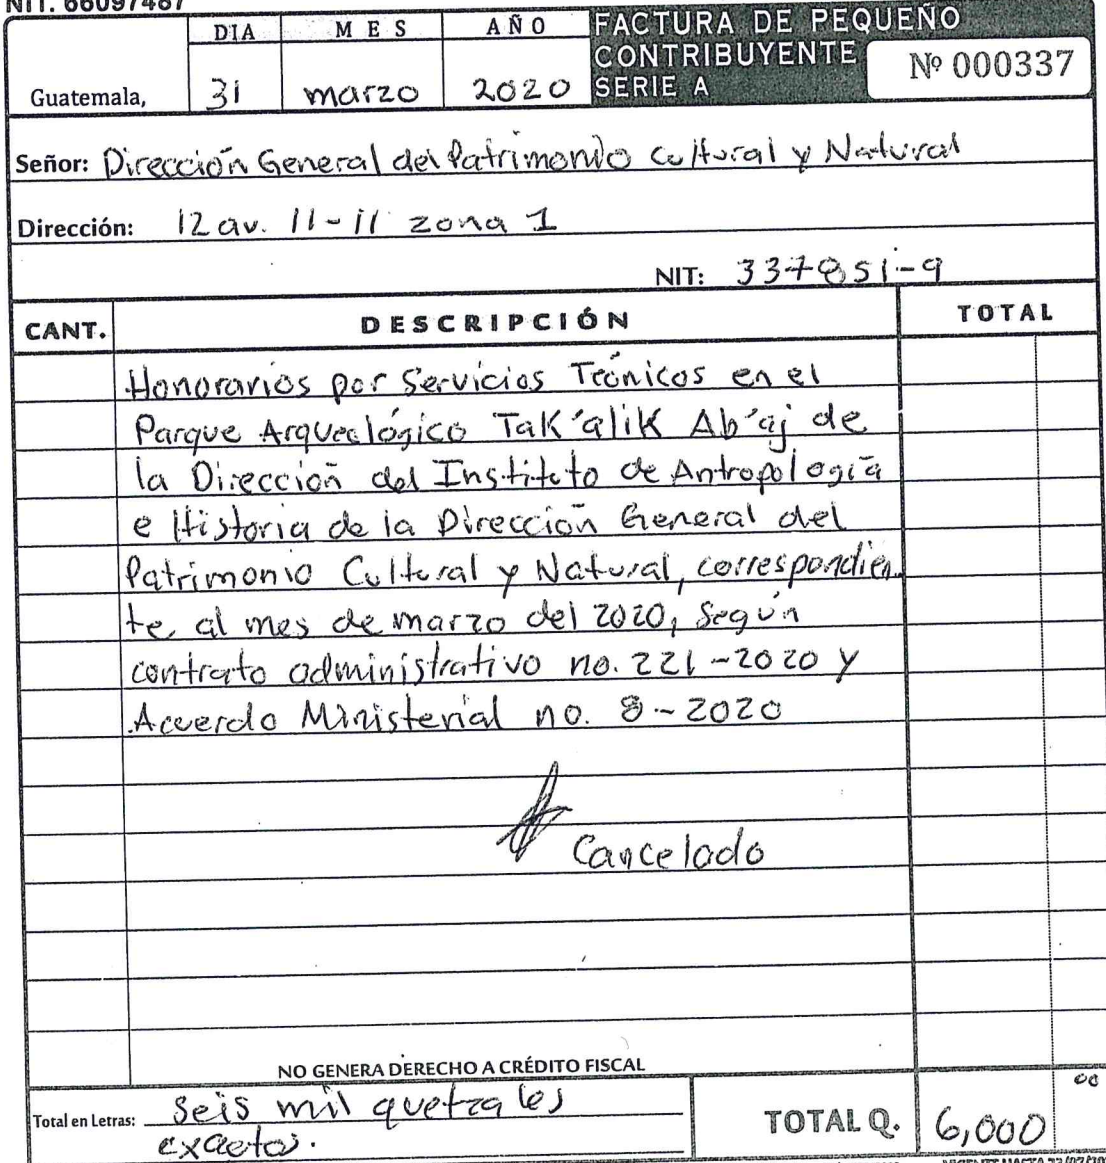 NIT. 66097487
DIA MES AÑO
FACTURA DE PEQUEÑO
CONTRIBUYENTE
SERIE A
Nº 000337
Guatemala, 31 marzo 2020
Señor: Dirección General del Patrimonio Cultural y Natural
Dirección: 12 av. 11-11 zona 1
NIT: 337851-9
CANT. DESCRIPCIÓN TOTAL
Honorarios por Servicios Técnicos en el
Parque Arqueológico Tak'alik Ab'aj de
la Dirección del Instituto de Antropología
e Historia de la Dirección General del
Patrimonio Cultural y Natural, correspondien
te al mes de marzo del 2020, Según
contrato administrativo no. 221-2020 y
Acuerdo Ministerial no. 8-2020
Cancelado
NO GENERA DERECHO A CRÉDITO FISCAL
Total en Letras: Seis mil quetzales
exactos.
TOTAL Q. 6,000 00